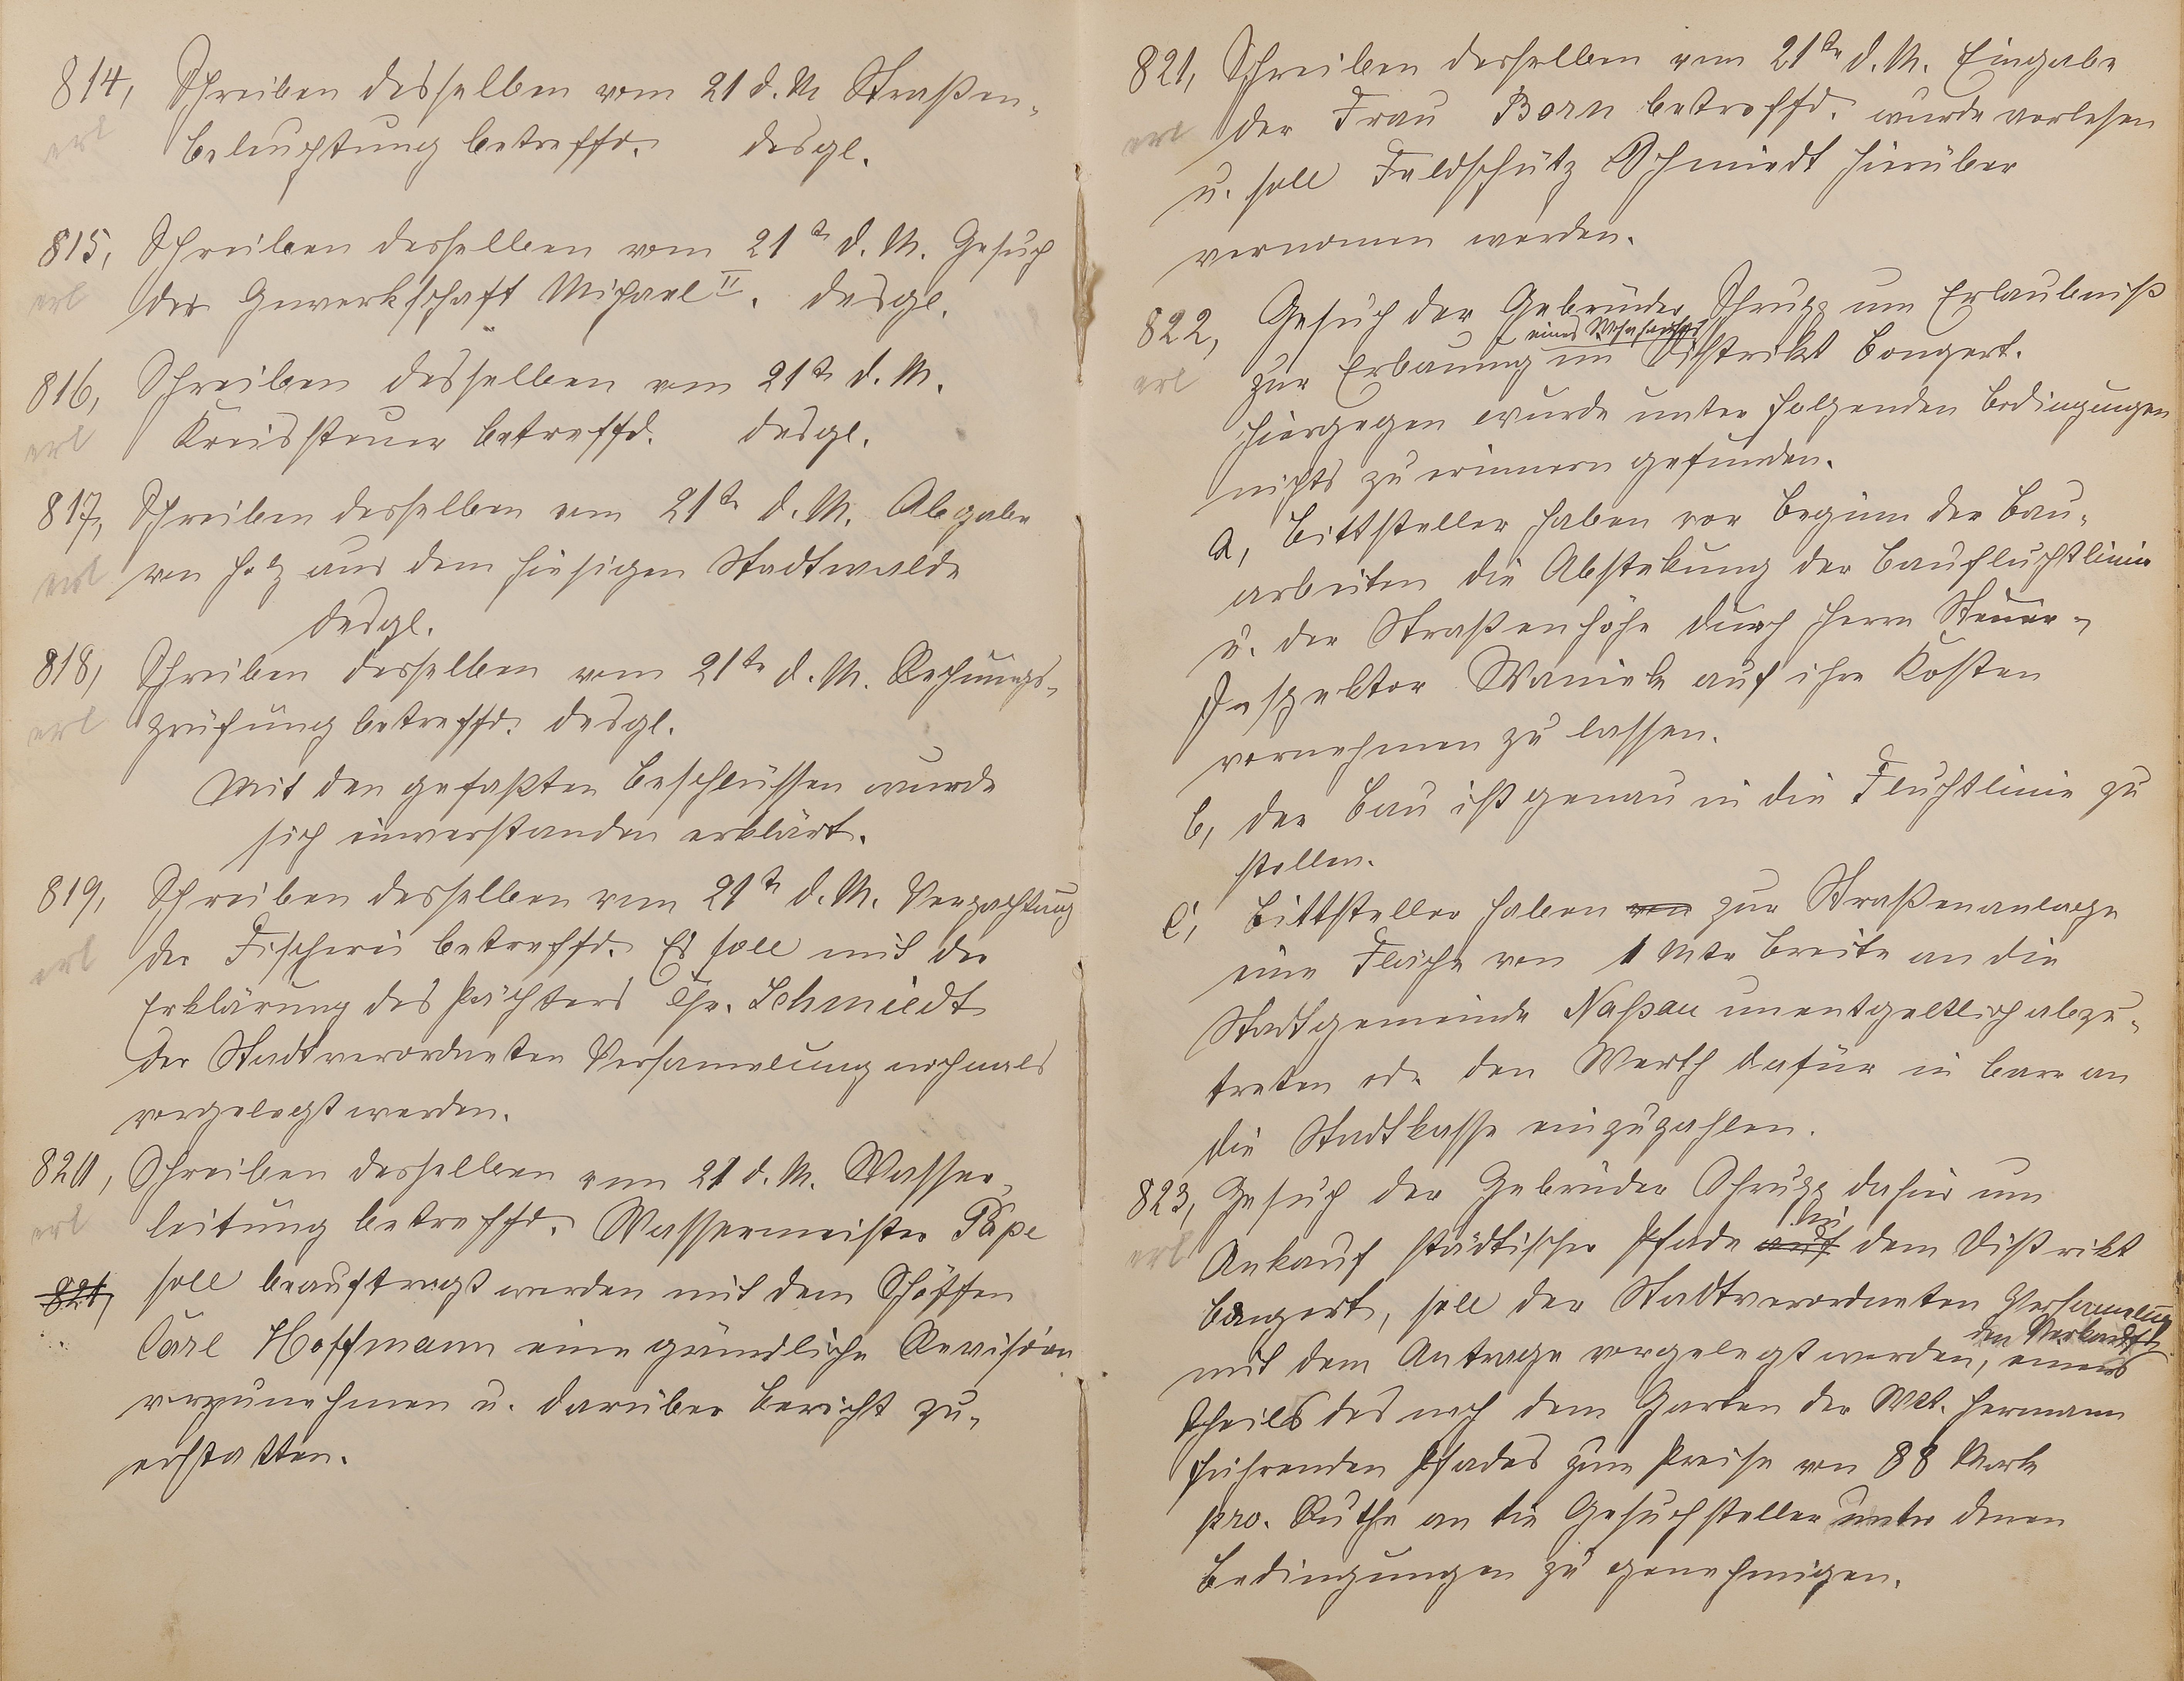 814, Schreiben desselben vom 21 d. M Straßen-
erl beleuchtung betreffd. desgl.
815, Schreiben desselben vom 21ten d. M. Gesuch
erl der Gewerkschaft Michael II. desgl.
816, Schreiben desselben vom 21ten d. M.
erl Kreissteuer betreffd. desgl.
817, Schreiben desselben vom 21ten d. M. Abgabe
erl von Holz aus dem hiesigen Stadtwalde
desgl.
818, Schreiben desselben vom 21ten d. M. Rechnungs-
erl prüfung betreffd. desgl.
Mit den gefaßten Beschlüssen wurde
sich einverstanden erklärt.
819, Schreiben desselben vom 21ten d. M. Verpachtung
erl der Fischerei betreffd. Es soll mit der
Erklärung des Pächters Chr. Schmiedt
der Stadtverordneten Versamelung nochmals
vorgelegt werden.
820, Schreiben desselben vom 21 d. M. Wasser-
erl leitung betreffd. Wassermeister Pape
821, soll beauftragt werden mit dem Schöffen
Carl Hoffmann eine gründliche Revision
vorzunehmen u. darüber Bericht zu-
erstatten.
821, Schreiben desselben vom 21ten d. M. Eingabe
erl der Frau Born betreffd. wurde verlesen
u. soll Feldschütz Schmiedt hierüber
vernomen werden.
822, Gesuch der Gebrüder Schrupp um Erlaubniß
eines Wohnhauses
erl zur Erbauung im Disstrikt Bongert.
Hiergegen wurde unter folgenden Bedingungen
nichts zu erinnern gefunden.
a, Bittsteller haben vor Beginn der Bau-
arbeiten die Abstekung der Baufluchtlinie
u. der Straßenhöhe durch Herrn Steuer-
Inspektor Waniek auf ihre Kosten
vornehmen zu lassen.
b, der Bau ist genau in die Fluchtlinie zu
stellen.
c, Bittsteller haben von zur Straßenanlage
eine Fläche von 1 Mtr Breite an die
Stadtgemeinde Naßau unentgeltlich abzu-
treten od. den Werth dafür in baar an
die Stadtkasse einzuzahlen.
823, Gesuch der Gebrüder Schrupp dahier um
bei
erl Ankauf städtischer Pfade auf dem Distrikt
Bongert, soll der Stadtverordneten Versamelung
den Verkauf
mit dem Antrage vorgelegt werden, eines
Theils des nach dem Garten der Wtt. Hermann
führenden Pfades zum Preise von 88 Mark
pro. Ruthe an die Gesuchsteller unter denen
Bedingungen zu genehmigen.